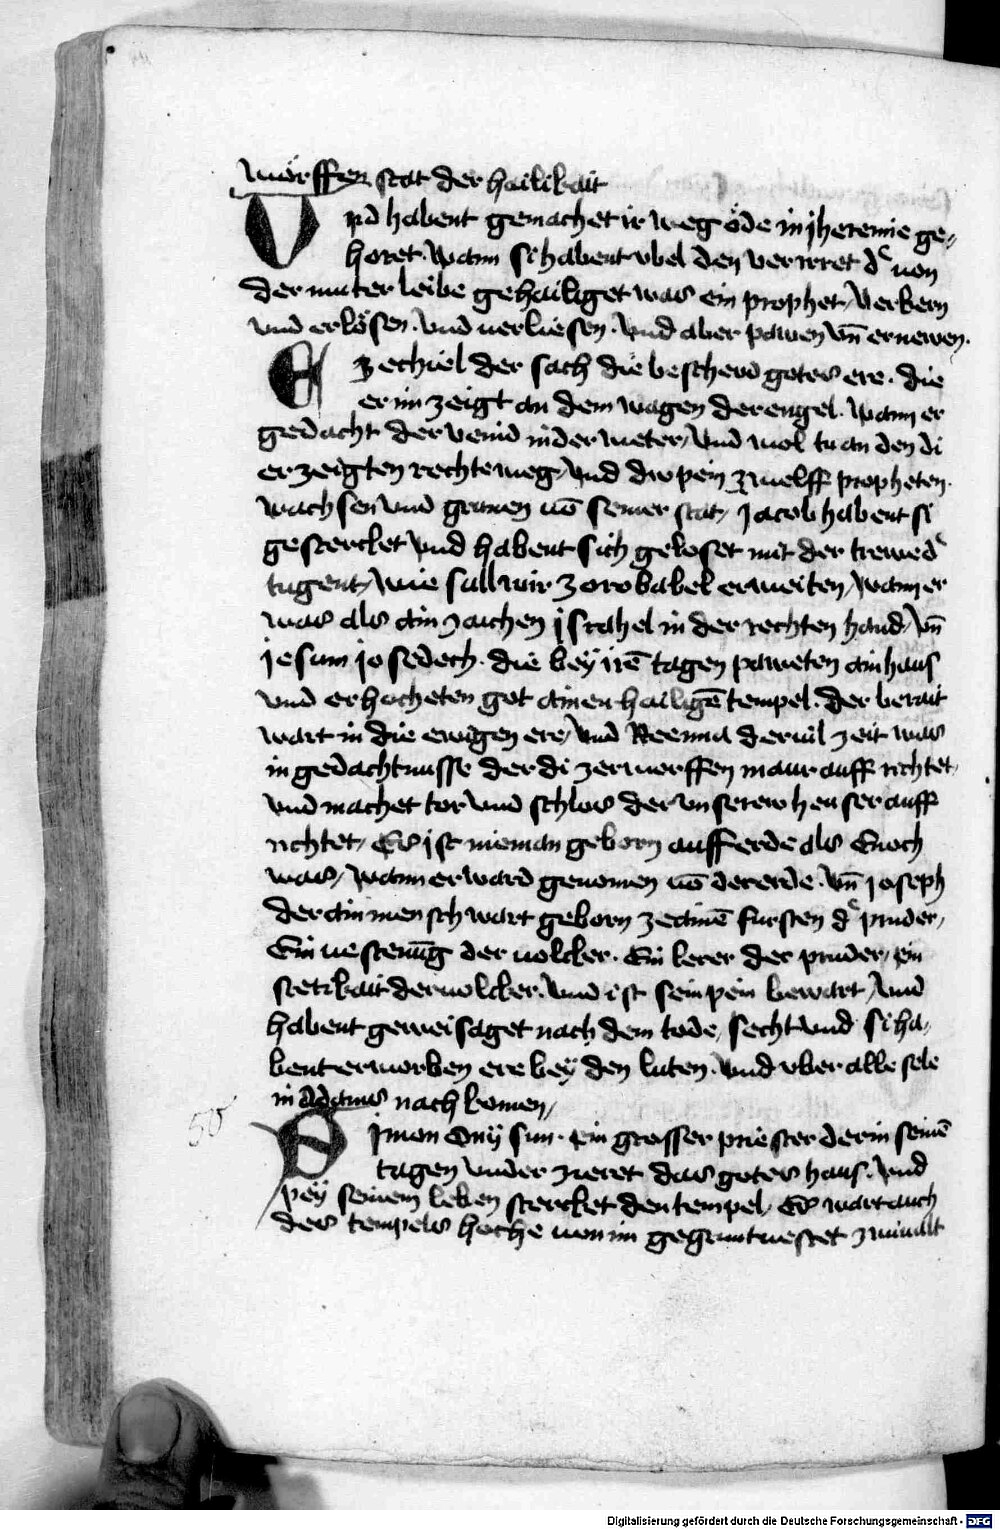 wurffen stat der hailikait
Vnd habent gemachet ir weg öde in jheremie ge-
horet. Wann si habent vbel den verirret dͨ von
der muter leibe gehailiget was ein prophet, Verkern
vnd erlösen. vnd verliesen. Vnd aber pawen vn̄ ernewen.
Ezechiel der sach die bescherd gotes ere. die
er im zeigt an dem wagen der engel. Wann er
gedacht der veind in der weter, vnd wol tu an den di
erzeigten rechte weg, Vnd die pein zwelff propheten.
wachsen vnd grunen vō seiner stat, Jacob habent si
gestercket vnd habent sich geloset mit der trewe dͨ
tugent, Wie sull wir zorobabel erweiten, Wann er
was als ain zaichen jsrahel in der rechten hand, Vn̄
jesum josedech. die bey irē tagen paweten ain haus
vnd erhocheten got ainen hailigē tempel. der berait
wart in die ewigen ere, Vnd Neemia der vil zeit was
in gedachtnusse der di zerworffen maur auff richtet,
vnd machet tor vnd schlos der vnserew heuser auff
richtet, Es ist nieman geborn auff erde als Enoch
was, Wann er ward genomen vō der erde. Vn̄ joseph
der ain mensch wart geborn ze ainē fursten dͨ pruder,
Ein vestenūg der volcker. Ein lerer der pruder, ein
stetikait der volcker. Vnd ist sein pein bewart, Vnd
habent geweisaget nach dem tode, secht vnd si ha-
bent erworben ere bey den luten. Vnd vber alle sele
in Adams nach komen,
50
Simon Onÿ sun. Ein grosser priester der in seinē
tagen vnder zieret das gotes haus. Vnd
pey seinem leben stercket den tempel, Es wart auch
des tempels hoche von im gegruntvestet zwivalt
Digitalisierung gefördert durch die Deutsche Forschungsgemeinschaft - DFG